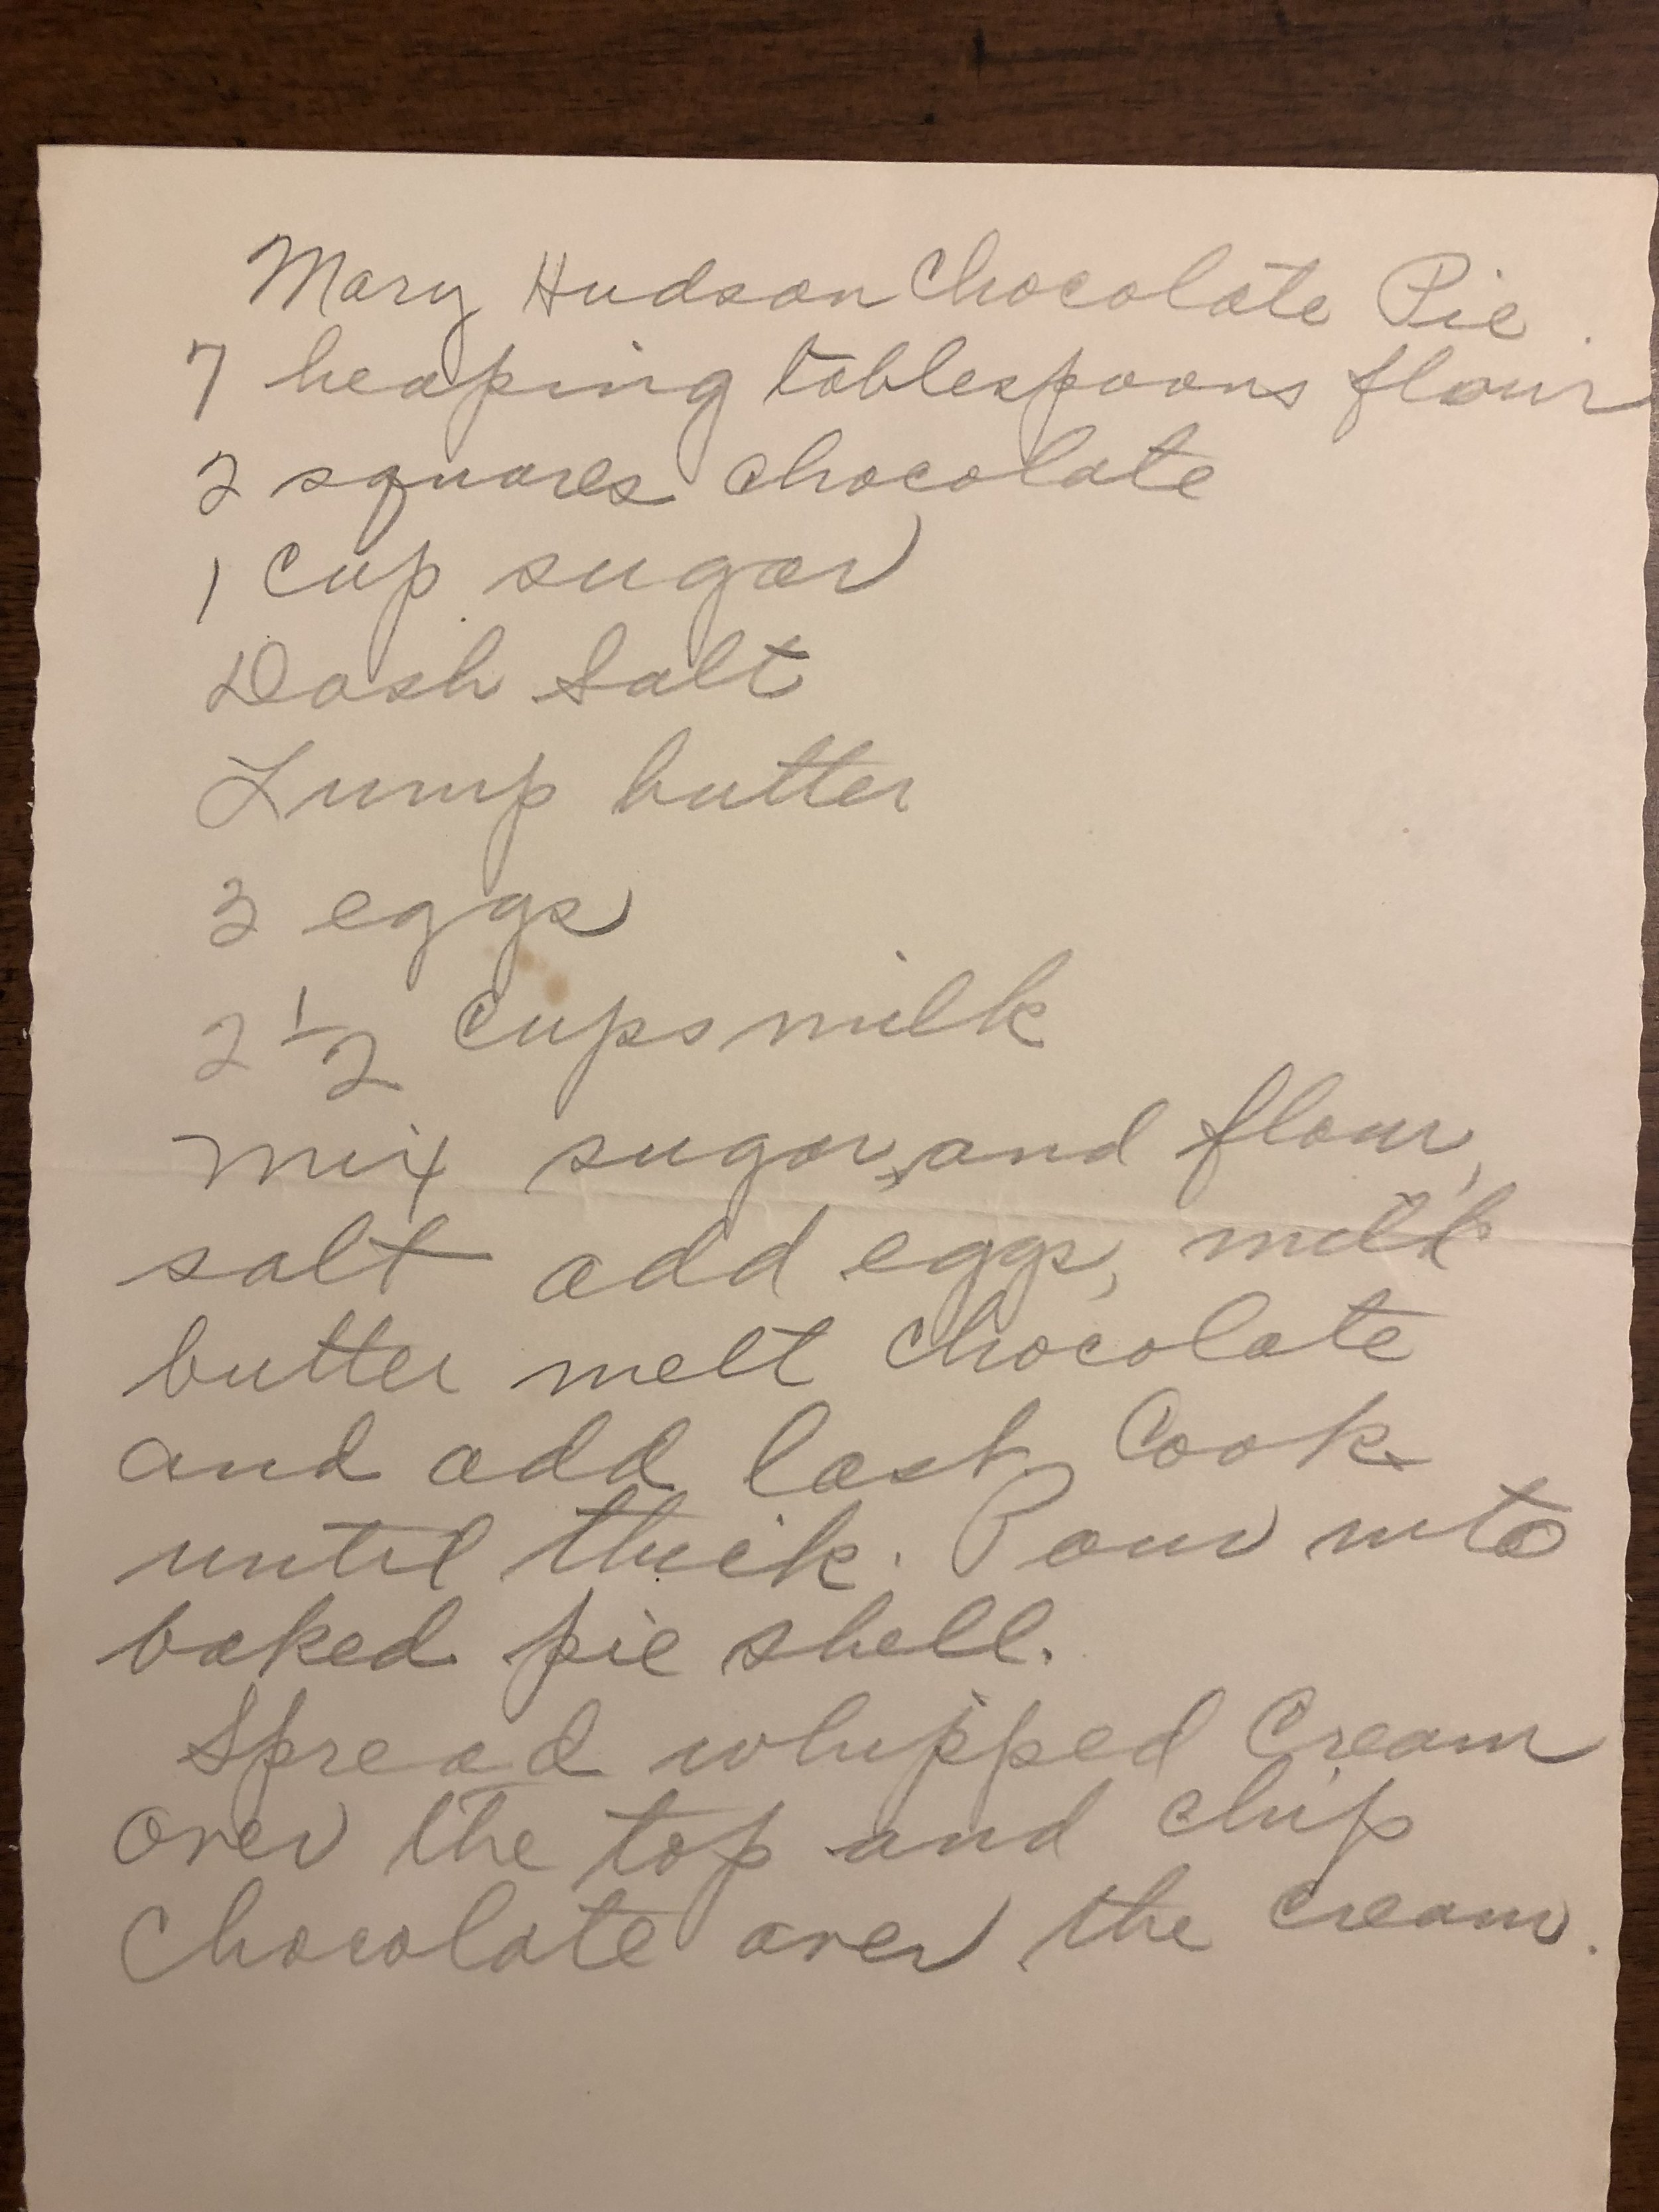 Mary Hudson Chocolate Pie
7 heaping tablespoons flour
2 squares chocolate
1 Cup sugar
Dash Salt
Lump butter
3 eggs
2 1/2 Cups milk
Mix sugar, and flour,
salt add eggs, milk
butter melt chocolate
and add last. Cook
until thick. Pour into
baked pie shell.
Spread whipped Cream
over the top and chip
Chocolate over the cream.